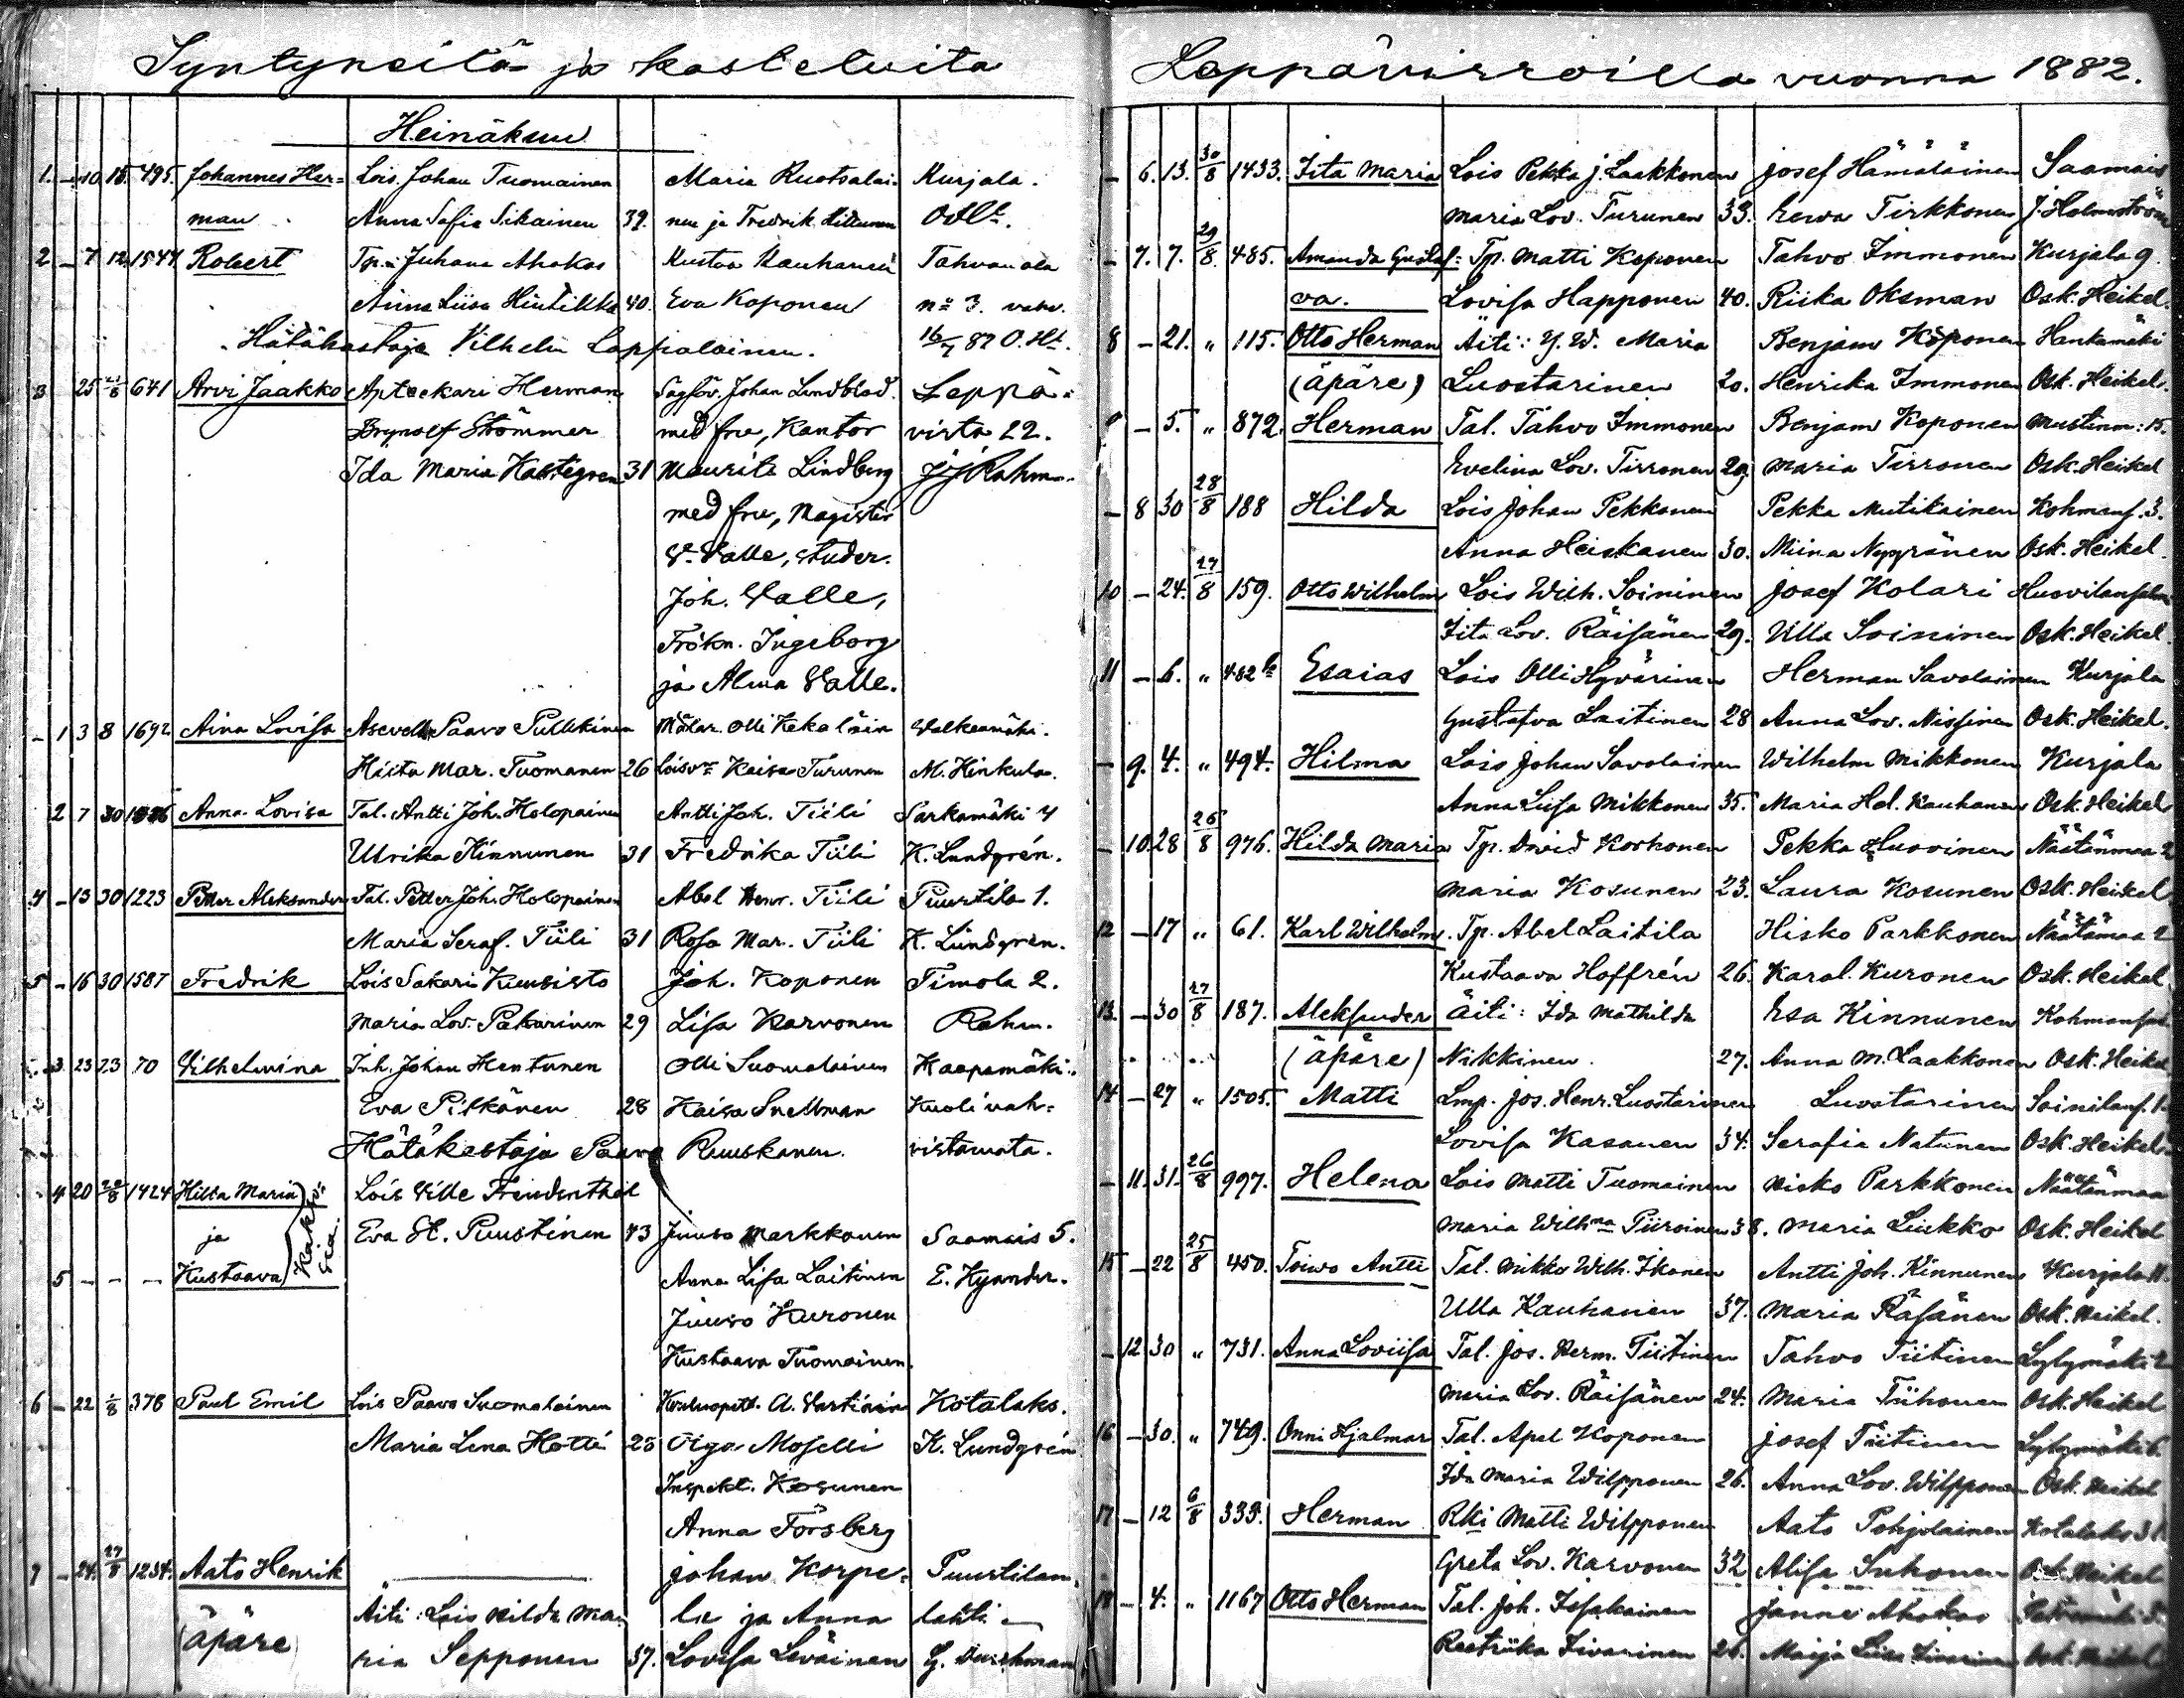 Syntyneitä ja kasteluita
Heinäkuu
1. – 10 15. 495. Johannes Her= Lois. Johan Tuomainen Maria Ruotsalai= Kurjala.
man Anna Sofia Sikainen 39. nen ja Fredrik
2 – 7 12 1544 Robert Tp. Juhana Ahokas Kustaa Kauhanen Tahvanala
Anna Liisa 40. Eva Koponen nº 3.
Hätäkastaja Vilhelm Lappalainen. 16/7 82 O. Hl.
3 25 641 Arvi Jaakko Apteekari Herman Johan Lindblad Leppä=
Brynolf Strömmer med fru, Kantor virta 22.
Ida Maria 31 Maurits Lindberg
med fru, Magister
V. Valle, studer.
Joh. Valle,
Frökn. Ingeborg
ja Alma Valle.
– 1 3 8 1692 Aina Lovisa Paavo Pulkkinen Olli Valkeamäki.
Mar. Tuomanen 26 Kaisa Turunen M. Hinkula.
2 7 30 Anna Lovisa Tal. Antti Joh. Holopainen Antti Joh. Tiili Sarkamäki 4
Ulrika Kinnunen 31 Fredrika Tiili K. Lundgrén.
4 – 13 30 1223 Petter Aleksander Tal. Petter Joh. Holopainen Abel Henr. Tiili Puurtila 1.
Maria Seraf. Tiili 31 Rosa Mar. Tiili K. Lundgren.
5 – 16 30 1587 Fredrik Lois Sakari Kuusisto Joh. Koponen Timola 2.
Maria Lov. Pakarinen 29 Lisa Karvonen Rahm.
3 23 23 70 Vilhelmina Inh. Johan Hentunen Olli Suomalainen Haapamäki.
Eva Pitkänen 28 Kaisa Snellman Kuoli vah=
Hätäkastaja Paavo Ruuskanen. vistamata.
4 20 22/8 1424 Hilda Maria Lois Ville Freudenthal
ja Eva St. Puustinen 43 Juuso Markkanen Saamais 5.
5 – – – Kustaava Anna Lisa Laitinen E. Kyander.
Juuso Kuronen
Kustaava Tuomainen.
6 – 22 1/8 376 Paul Emil Lois Paavo Suomalainen Koulunopett. A. Vartiain Kotalaks.
Maria Lena Hotti 25 Olga Moselli K. Lundgrén
Inspekt. Kosunen
Anna Forsberg
7 – 24. 27/8 1234. Aato Henrik Johan Korpe= Puurtilan
Äiti: Lois Hilda Ma= la ja Anna lahti
(äpäre) ria Sepponen 37. Lovisa Leväinen
Leppävirroilla vuonna 1882.
– 6. 13. 30/8 1433. Iita Maria Lois Pekka J. Laakkonen Josef Hämäläinen Saamais
Maria Lov. Turunen 33. Eewa Tirkkonen J. Holmström
– 7. 7. 29/8 485. Amanda Gustaf= Tp. Matti Koponen Tahvo Immonen Kurjala 9
va. Lovisa Happonen 40. Riika Oksman Osk. Heikel.
8 – 21. „ 115. Otto Herman Äiti: Y. W. Maria Benjam Koponen Hankamäki
(äpäre) Luostarinen 20. Henrika Immonen Osk. Heikel.
9 – 5. „ 872. Herman Tal. Tahvo Immonen Benjam Koponen Mustinm: 15.
Evelina Lov. Tirronen 29. Maria Tirronen Osk. Heikel
– 8 30 28/8 188 Hilda Lois Johan Pekkonen Pekka Mutikainen Kohmans. 3.
Anna Heiskanen 30. Miina Nyyränen Osk. Heikel.
10 – 24. 27/8 159. Otto Wilhelm Lois Wilh. Soininen Josef Kolari
Iita Lov. Räisänen 29. Ulla Soininen Osk. Heikel
11 – 6. „ 482 Esaias Lois Olli Hyvärinen Herman Savolainen Kurjala
Gustafva Laitinen 28 Anna Lov. Nissinen Osk. Heikel.
– 9. 4. „ 494. Hilma Lois Johan Savolainen Wilhelm Mikkonen Kurjala
Anna Lisa Mikkonen 35. Maria Hel. Kauhanen Osk. Heikel
– 10. 28 26/8 976. Hilda Maria Tp. David Korhonen Pekka Huovinen Näätänmaa 2
Maria Kosunen 23. Laura Kosunen Osk. Heikel
12 – 17 „ 61. Karl Wilhelm. Tp. Abel Laitila Hisko Parkkonen Näätämaa 2
Kustaava Hoffrén 26. Karol. Kuronen Osk. Heikel
13. – 30 27/8 187. Aleksander Äiti: Ida Mathilda Esa Kinnunen
(äpäre) Nikkinen. 27. Anna M. Laakkonen Osk. Heikel
14 – 27 „ 1505. Matti Lmp. Jos. Henr. Luostarinen Luostarinen Soinilans. 1.
Lovisa Kasanen 34. Serafia Natunen Osk. Heikel
– 11. 31. 26/8 997. Helena Lois Matti Tuomainen Hisko Parkkonen Näätänmaa
Maria Wilhna Piiroinen 38. Maria Liukko Osk. Heikel
15 – 22 25/8 450. Toiwo Antti Tal. Mikko Wilh. Ikonen Antti Joh. Kinnunen Kurjala 11.
Ulla Kauhanen 37. Maria Räsänen Osk. Heikel.
– 12 30 „ 731. Anna Loviisa Tal. Jos. Herm. Tiitinen Tahvo Tiitinen Sylymäki 2
Maria Lov. Räisänen 24. Maria Tiihonen Osk. Heikel
16 – 30. „ 749. Onni Hjalmar Tal. Apel Koponen Josef Tiitinen Sylymäki 6.
Ida Maria Wilpponen 26. Anna Lov. Wilpponen Osk. Heikel
17 – 12 6/8 333. Herman Rki Matti Wilpponen Aato Pohjolainen Kotalaks 31
Greta Lov. Karvonen 32 Alisa Inkonen Osk. Heikel
18 – 4. „ 1167 Otto Herman Tal. Joh. Issakainen Janne Ahokas
Reetriika Iivarinen 26. Maija Liisa Iivarinen Osk. Heikel